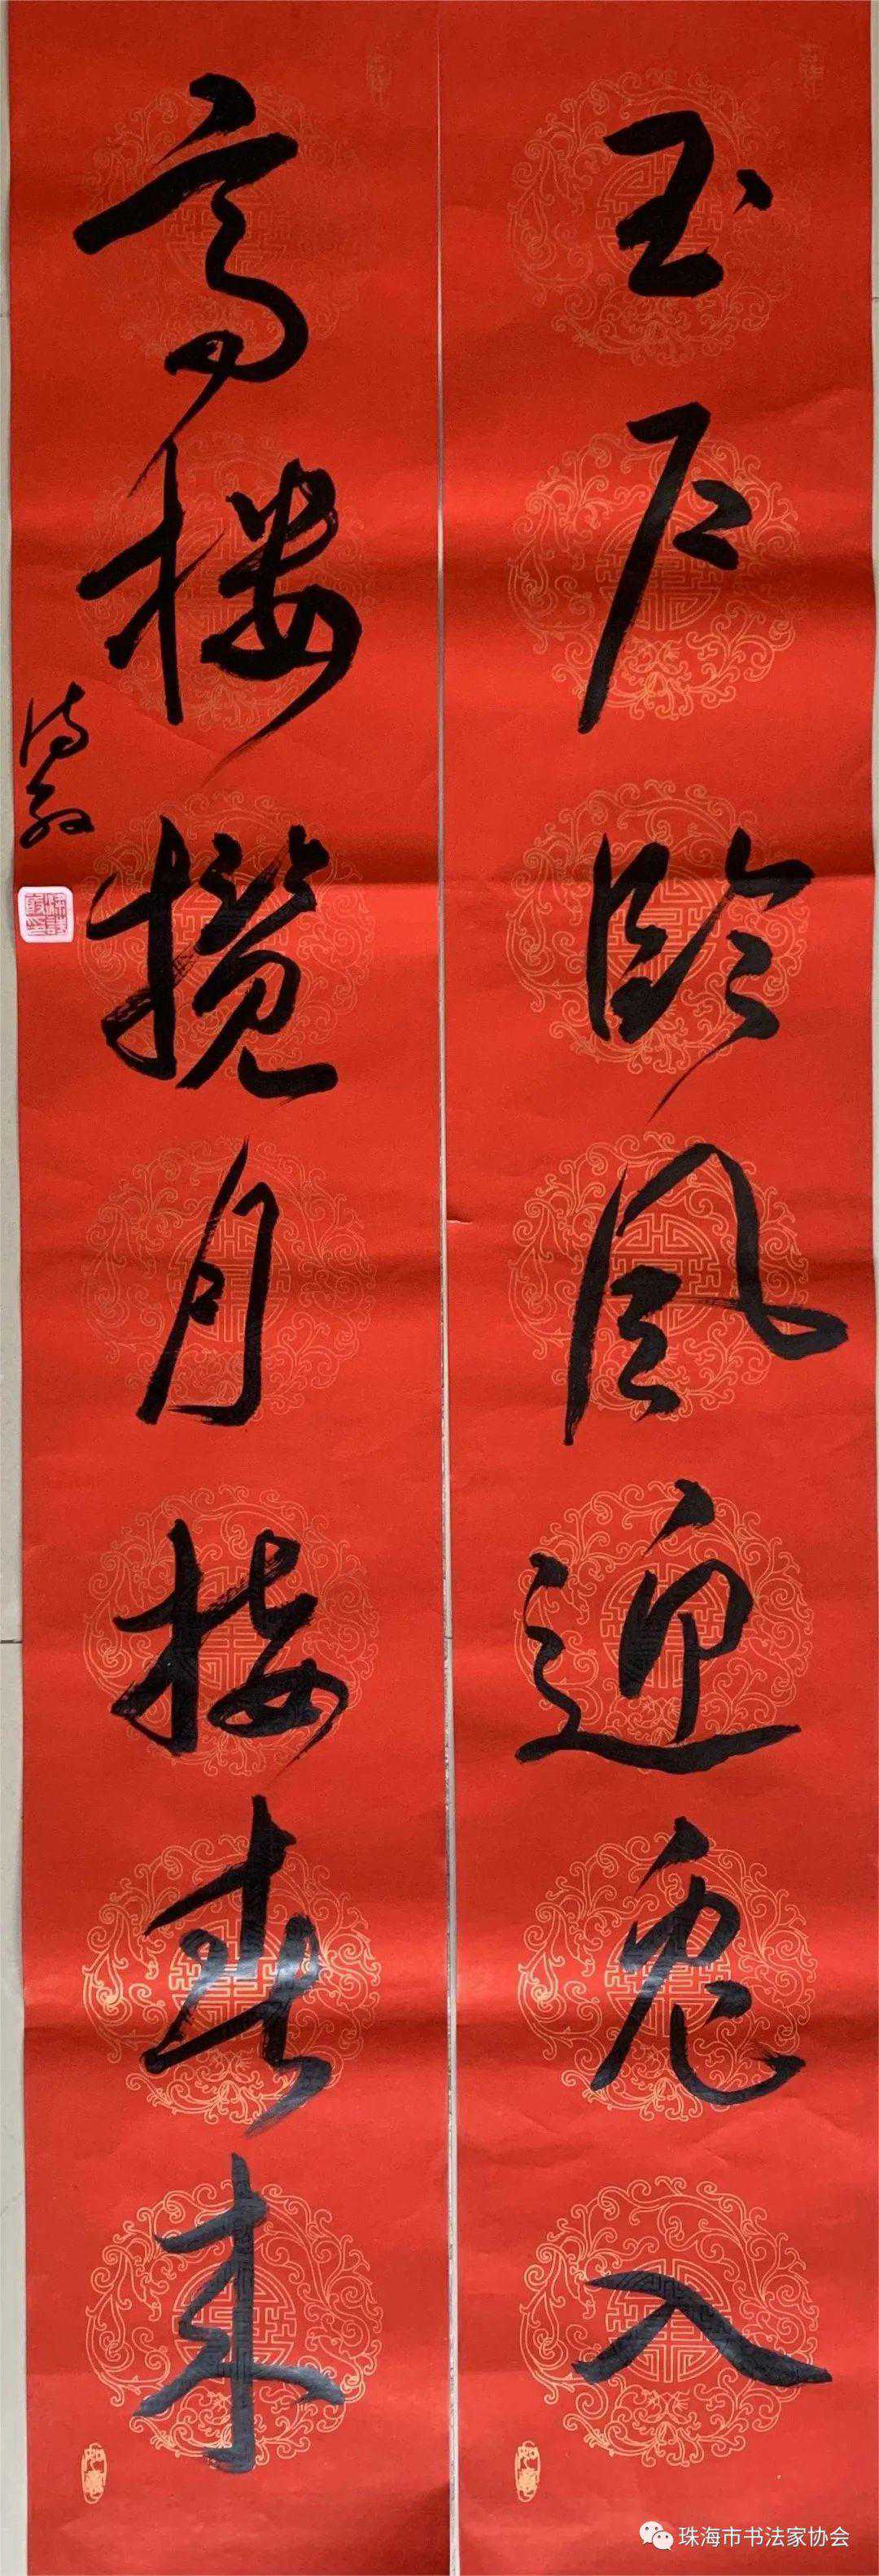 玉户临风迎兔入
高楼揽月接春来
诗敏
珠海市书法家协会